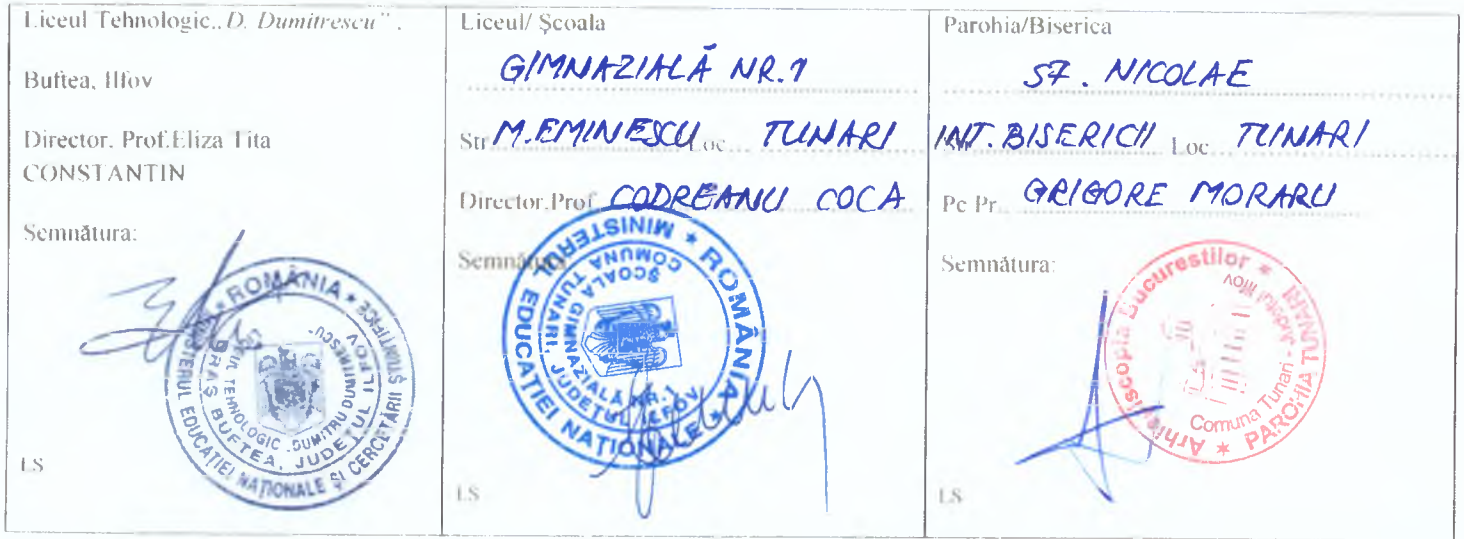 Liceul Tehnologic,,D. Dumitrescu" .
Buftea, Ilfov
Director. Prof.Eliza Tita
CONSTANTIN
Semnătura:
ROMÂNIA
MINISTERUL EDUCAȚIEI NAȚIONALE ȘI CERCETĂRII ȘTIINȚIFICE
ORAȘ BUFTEA, JUDEȚUL ILFOV
LICEUL TEHNOLOGIC "DUMITRU DUMITRESCU"
LS
Liceul/ Școala
GIMNAZIALĂ NR.1
Str M.EMINESCU Loc TUNARI
Director.Prof. CODREANU COCA
Semnătura
ROMÂNIA
MINISTERUL EDUCAȚIEI NAȚIONALE
ȘCOALA GIMNAZIALĂ NR.1
COMUNA TUNARI, JUDEȚUL ILFOV
LS
Parohia/Biserica
SF. NICOLAE
INT. BISERICII Loc TUNARI
Pc Pr. GRIGORE MORARU
Semnătura:
Arhiepiscopia Bucurestilor
PAROHIA TUNARI
Comuna Tunari - Județul Ilfov
LS